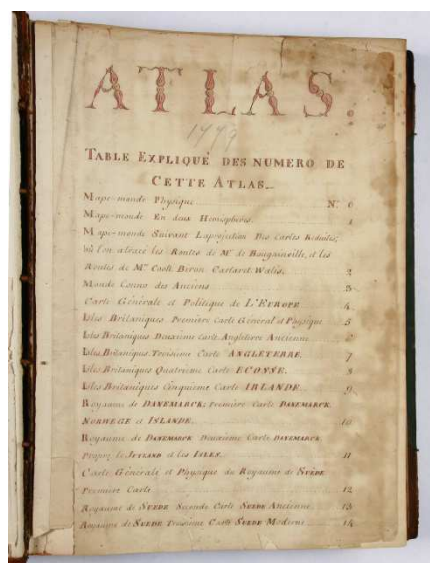 ATLAS.
TABLE EXPLIQUÉ DES NUMERO DE
CETTE ATLAS
Mape-monde Physique N.º 0
Mape-monde En deux Hemispheres 1
Mape-monde Suivant Laprojection Des Cartes Reduites;
où l'on a tracé les Routes de Mr de Bougainville, et les
Routes de Mrs Cook Biron Carteret et Walis, 2
Monde Connu des Anciens 3
Carte Générale et Politique de L'EUROPE 4
Isles Britaniques Premiere Carte Général et Physique 5
Isles Britaniques Deuxieme Carte Angleterre Ancienne
Isles Britaniques Troisieme Carte ANGLETERRE. 7
Isles Britaniques Quatrieme Carte ECOSSE. 8
Isles Britaniques Cinquieme Carte IRLANDE. 9
Royaume de DANEMARCK; Premiere Carte DANEMARCK
NORWEGE et ISLANDE 10
Royaume de DANEMARCK Deuxieme Carte DANEMARCK
Propre; le JUTLAND et les ISLES 11
Carte Générale et Physique du Royaume de SUEDE
Premiere Carte 12
Royaume de SUEDE Seconde Carte SUEDE Ancienne 13
Royaume de SUEDE Troisieme Carte SUEDE Moderne 14